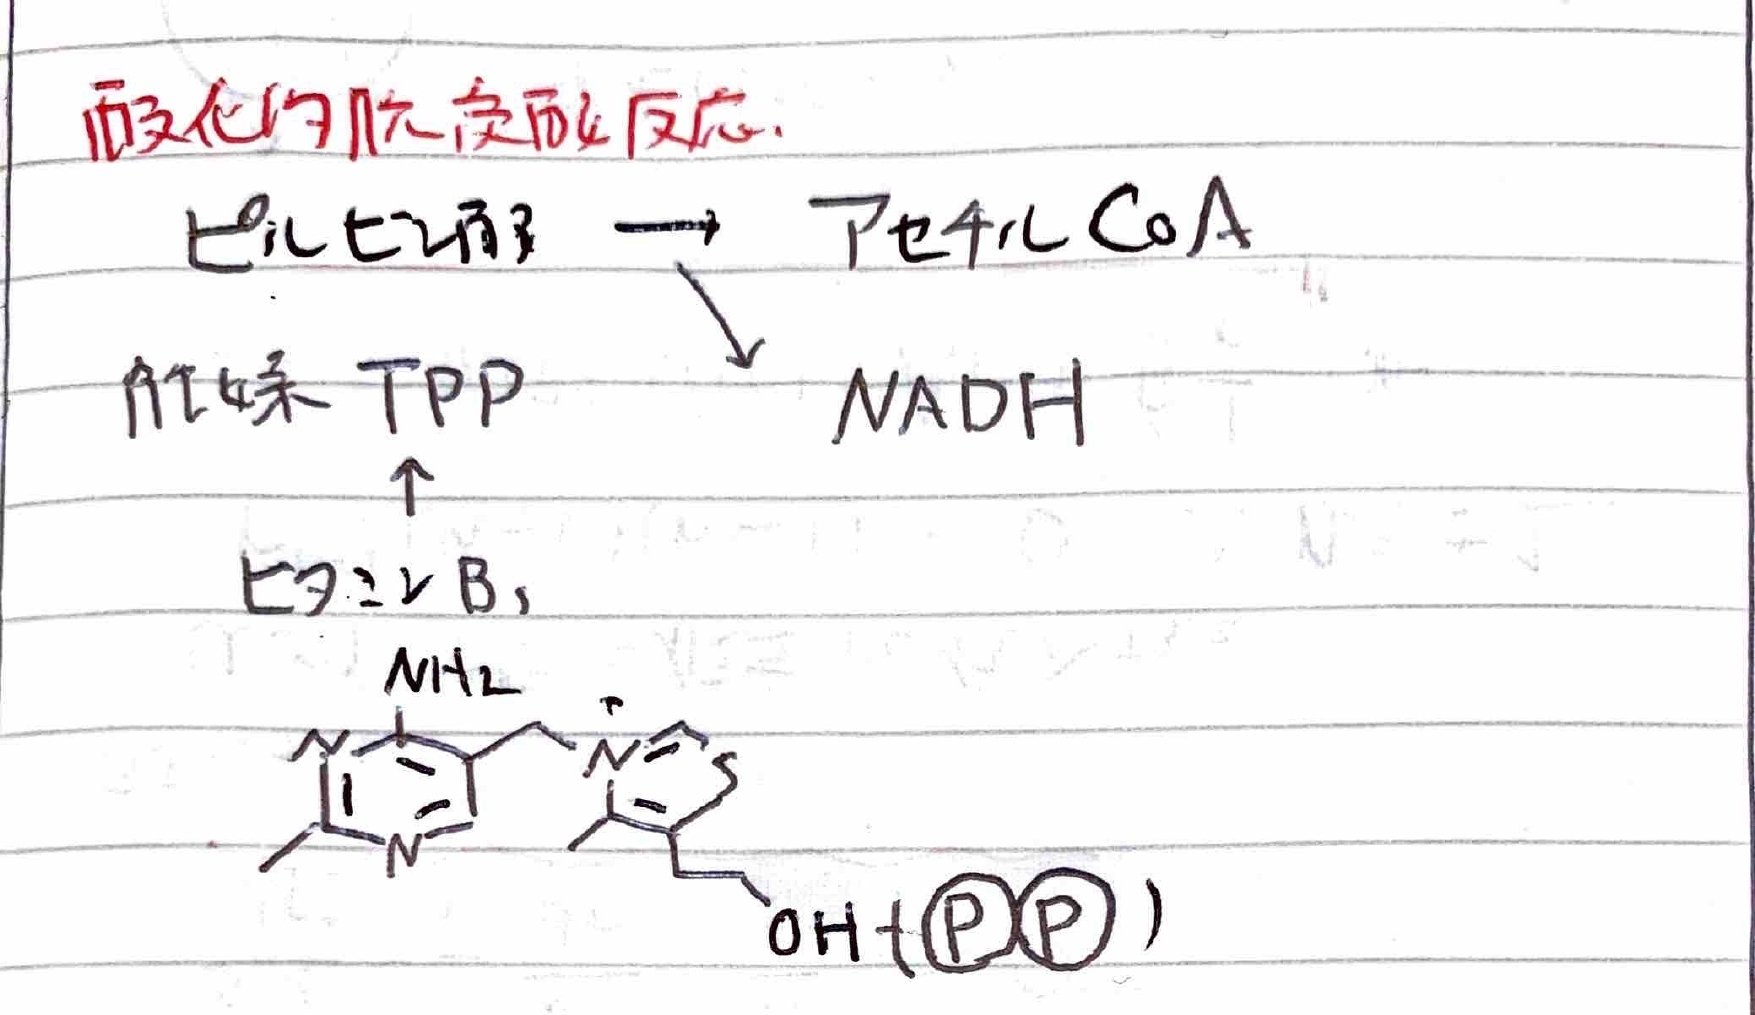 酸化的脱炭酸反応.
ピルビン酸 → アセチルCoA
補酵素 TPP NADH
↑
ビタミンB₁
NH2
N N⁺ S
N
OH (PP)